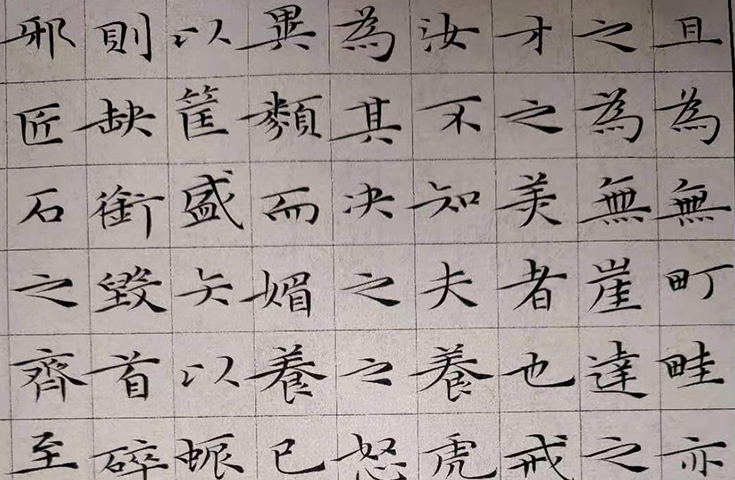 且為無町畦亦
之為無崖達之
才之美者也戒
汝不知夫養虎
為其决之之怒
異類而媚養己
以筐盛矢以蜄
則缺銜毀首碎
邪匠石之齊至